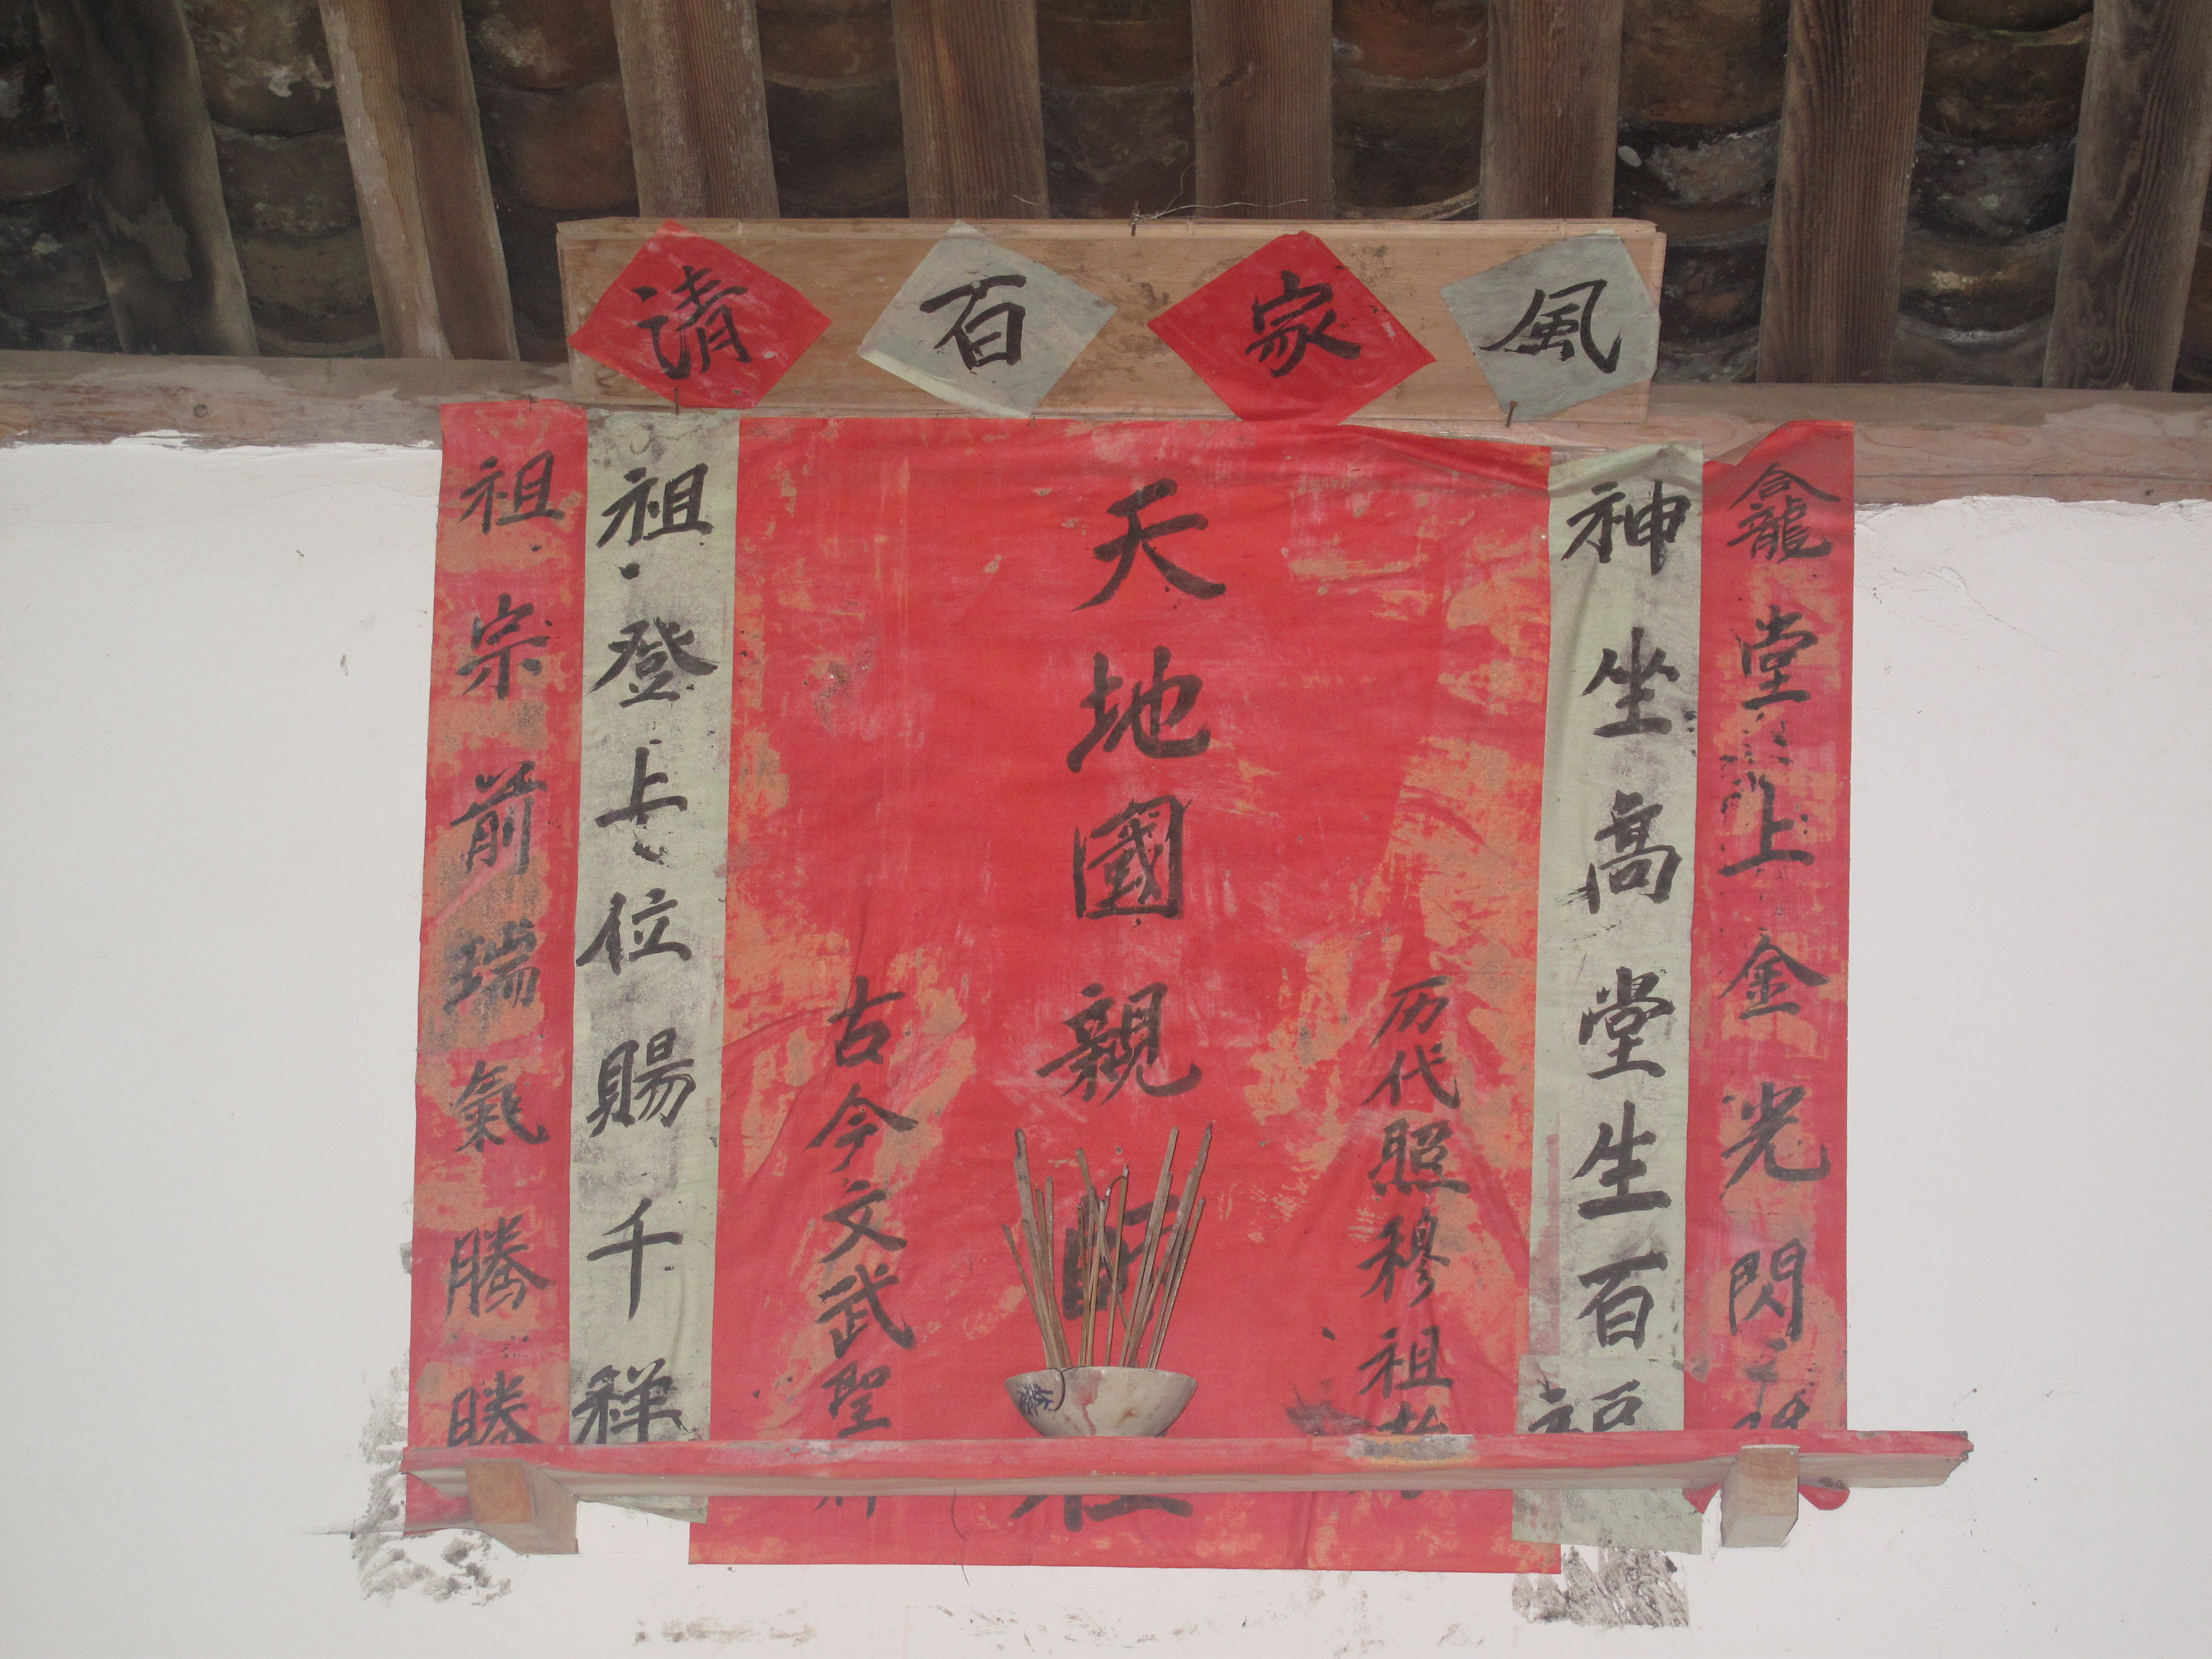 請百家風
龕堂上金光閃
神坐高堂生百福
历代照穆祖
天地國親
古今文武聖
祖登上位賜千祥
祖宗前瑞氣騰騰